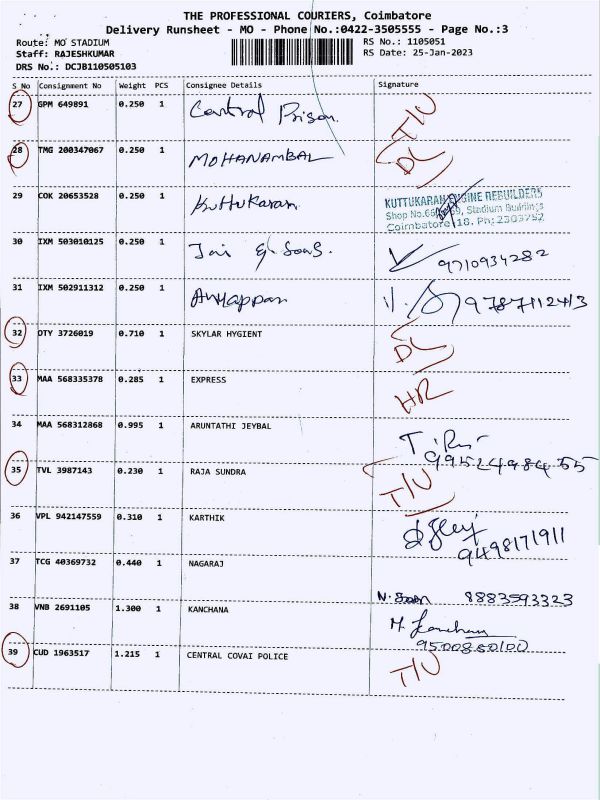 THE PROFESSIONAL COURIERS, Coimbatore
Delivery Runsheet - MO - Phone No.:0422-3505555 - Page No.:3
Route: MO STADIUM
Staff: RAJESHKUMAR
DRS No.: DCJB110505103
RS No.: 1105051
RS Date: 25-Jan-2023
S No Consignment No Weight PCS Consignee Details Signature
27 GPM 649891 0.250 1 Central Prison. T/U
28 TMG 200347067 0.250 1 MOHANAMBAL DL
29 COK 20653528 0.250 1 Kuttukaran KUTTUKARAN ENGINE REBUILDERS
Stadium Buildings
Coimbatore 18. Ph: 2303752
30 IXM 503010125 0.250 1 Jai & Sons. 9710934282
31 IXM 502911312 0.250 1 9787112413
32 OTY 3726019 0.710 1 SKYLAR HYGIENT DL
33 MAA 568335378 0.285 1 EXPRESS HR
34 MAA 568312868 0.995 1 ARUNTATHI JEYBAL
35 TVL 3987143 0.230 1 RAJA SUNDRA T/U
36 VPL 942147559 0.310 1 KARTHIK
9498171911
37 TCG 40369732 0.440 1 NAGARAJ
8883593323
38 VNB 2691105 1.300 1 KANCHANA M. Kanchana
39 CUD 1963517 1.215 1 CENTRAL COVAI POLICE T/U